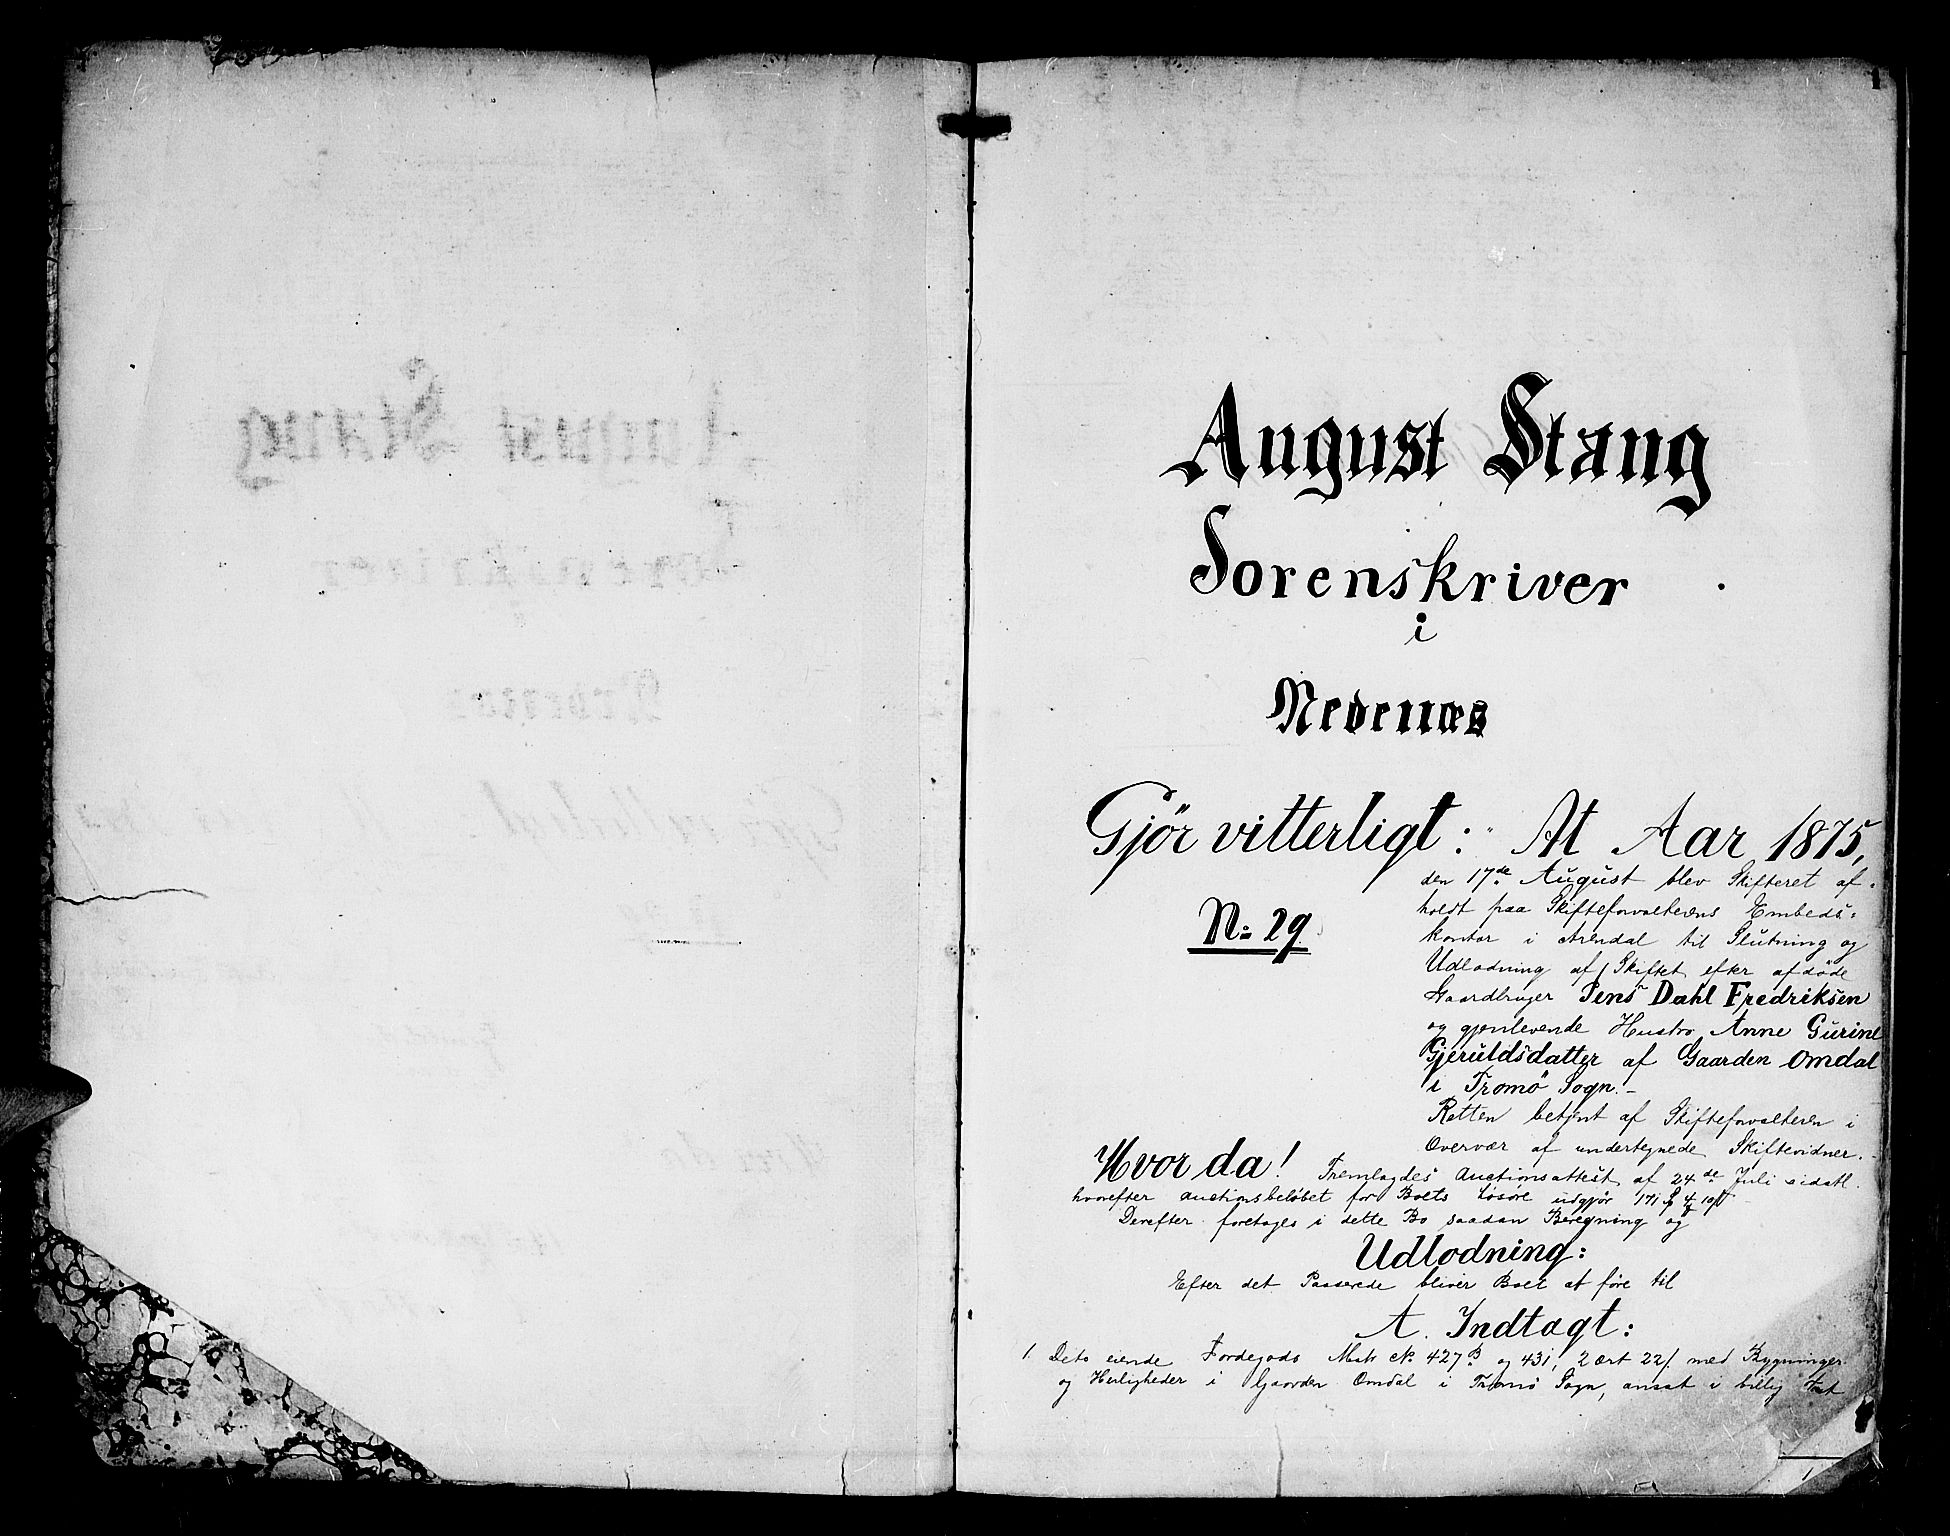 1
August Stang
Sorenskriver
i
Nedenæs
Gjör vitterligt: At Aar 1875,
den 17de August blev Skifteret af-
holdt paa Skifteforvalterens Embeds-
No 29.
kontor i Arendal til Slutning og
Udlodning af Skiftet efter afdöde
Gaardbruger Jens Dahl Fredriksen
og gjenlevende Hustro Anne Gurine
Gjeruldsdatter af Gaarden Omdal
i Tromö Sogn.-
Retten betjent af Skifteforvalteren i
Overvær af undertegnede Skiftevidner.-
Hvor da! Fremlagdes Auctionsattest af 24de Juli sidstl.
hvorefter auctionsbelöbet for Boets Lösöre udgjör 171
Derefter foretages i dette Bo saadan Beregning og
Udlodning:
Efter det Passerede bliver Boet at före til
A. Indtægt:
1. Dets eiende Jordegods Mat. No 427B og 431, 2 ort 22 med Bygninger
og Herligheder i Gaarden Omdal i Tromö Sogn, ansat i billig
1